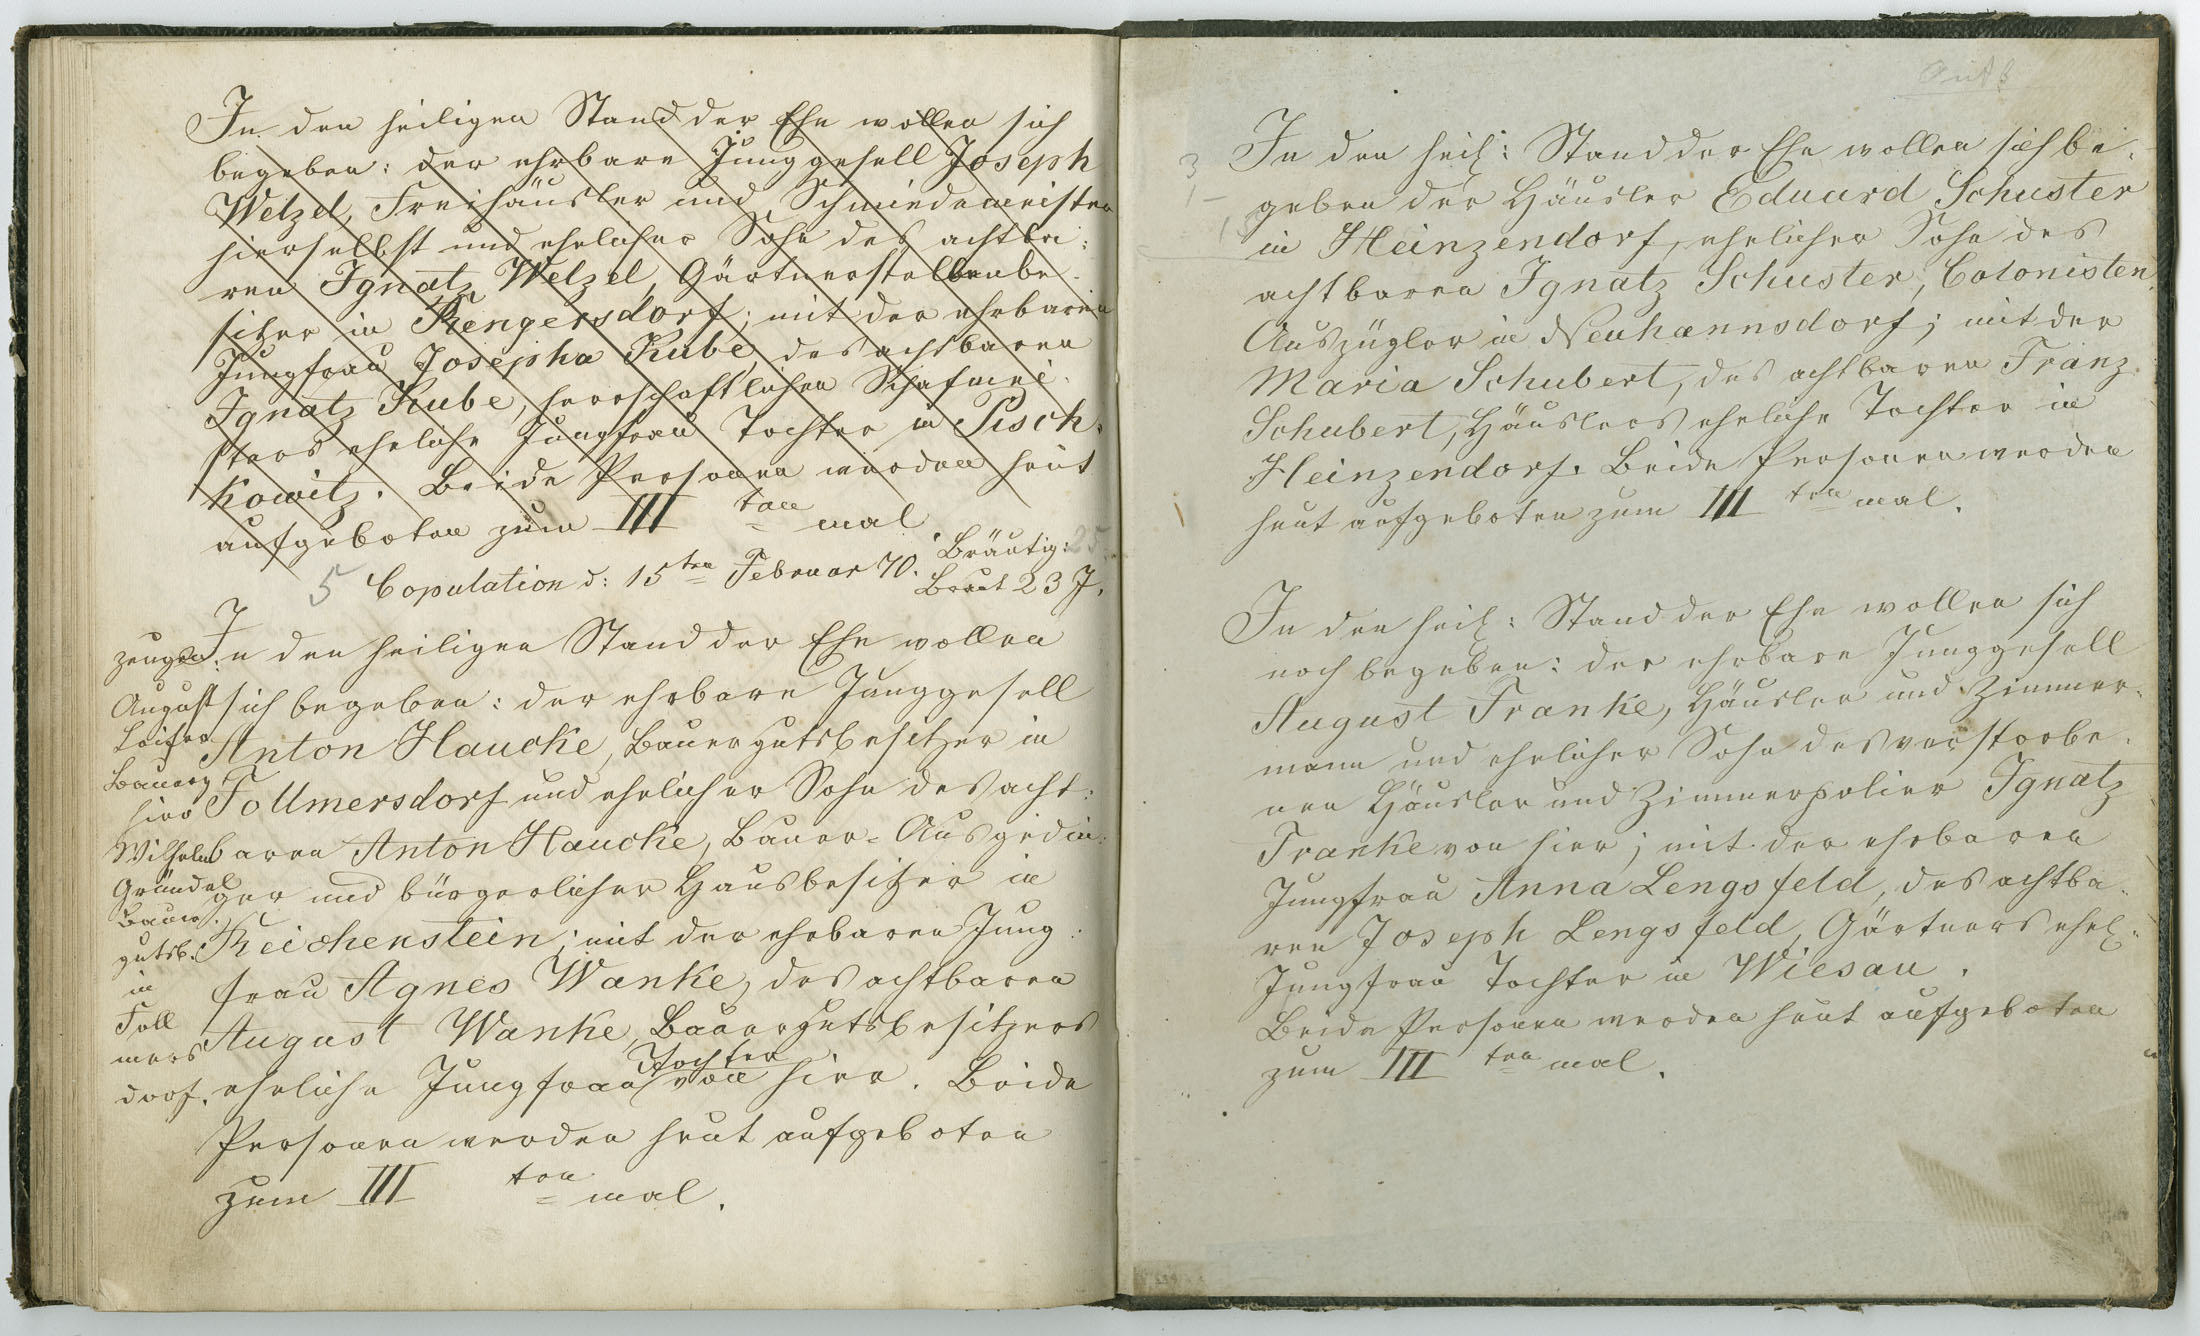 In den heiligen Stand der Ehe wollen sich
begeben: der ehrbare Junggesell Joseph
Welzel, Freihäusler und Schmiedemeister
hierselbst und ehelicher Sohn des achtba:
ren Ignatz Welzel, Gärtnerstellenbe-
sitzer in Rengersdorf; mit der ehrbaren
Jungfrau Josepha Rube, des achtbaren
Ignatz Rube, herrschaftlichen Schafmei-
sters eheliche Jungfrau Tochter in Pisch-
kowitz. Beide Personen werden heut
aufgeboten zum III ten mal
5 Copulation d: 15ten Februar 70. Bräutig: 25
Braut 23 J.
In den heiligen Stand der Ehe wollen
sich begeben: der ehrbare Junggesell
Anton Haucke, Bauergutsbesitzer in
Follmersdorf und ehelicher Sohn des acht:
baren Anton Haucke, Bauer-Ausgedin:
ger und bürgerlicher Hausbesitzer in
Reichenstein; mit der ehrbaren Jung:
frau Agnes Wanke, des achtbaren
August Wanke, Bauergutsbesitzers
eheliche Jungfrau Tochter von hier. Beide
Personen werden heut aufgeboten
zum III ten mal.
Zeugen:
August
Bauerg
hier
Wilhelm
Gründel
Bauer-
gutsb.
in
Foll
mers
dorf.
In den heil: Stand der Ehe wollen sich be-
geben der Häusler Eduard Schuster
in Heinzendorf, ehelicher Sohn des
achtbaren Ignatz Schuster, Colonisten
Auszügler in Neuhannsdorf; mit der
Maria Schubert, des achtbaren Franz
Schubert, Häuslers eheliche Tochter in
Heinzendorf. Beide Personen werden
heut aufgeboten zum III ten mal.
In den heil: Stand der Ehe wollen sich
noch begeben: der ehrbare Junggesell
August Franke, Häusler und Zimmer-
mann und ehelicher Sohn des verstorbe-
nen Häusler und Zimmerpolier Ignatz
Franke von hier; mit der ehrbaren
Jungfrau Anna Lengsfeld, des achtba-
ren Joseph Lengsfeld, Gärtners ehel:
Jungfrau Tochter in Wiesau.
Beide Personen werden heut aufgeboten
zum III ten mal.